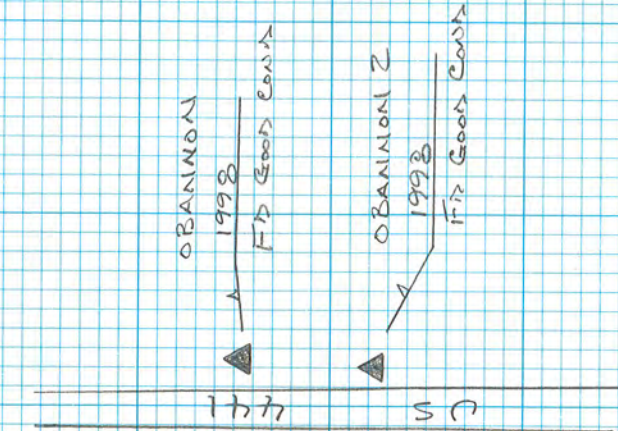 OBANNON
1998
FD GOOD COND
OBANNON 2
1998
FD GOOD COND
US 441